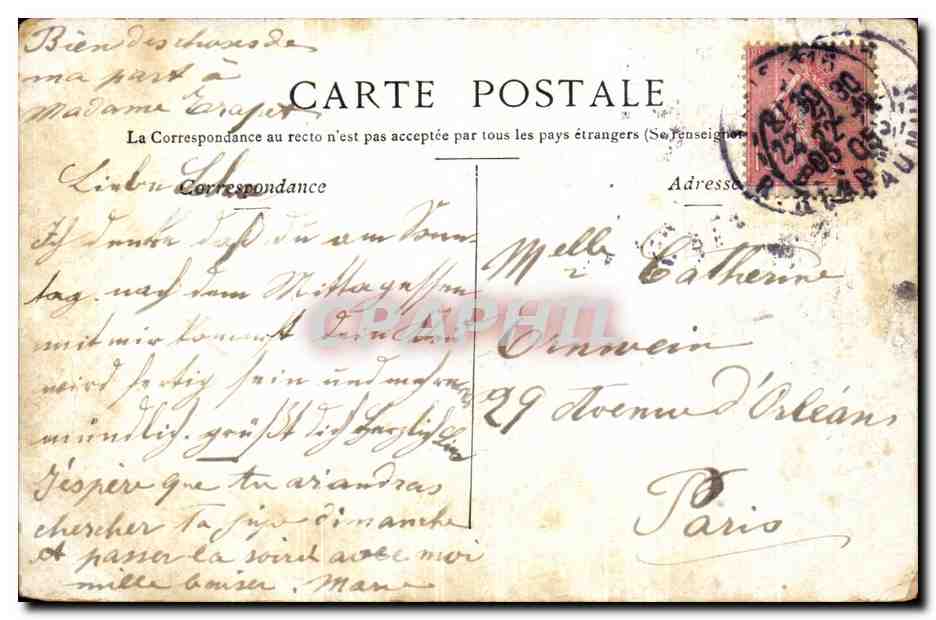 Bien des choses de
ma part à
Madame Trapet
CARTE POSTALE
La Correspondance au recto n'est pas acceptée par tous les pays étrangers (Se renseigner
Correspondance
Adresse
Liebe
Ich denke daß du am Sonn-
tag nach dem Mittagessen
mit mir kommst dein
wird fertig sein und mehr
mündlich. grüßt dich Herzlich
J'espère que tu viendras
chercher ta jupe dimanche
et passer la soiré avec moi
mille baiser. Marie
Melle Catherine
Ornwein
29 Avenue d'Orléans
Paris
CPAPHIL